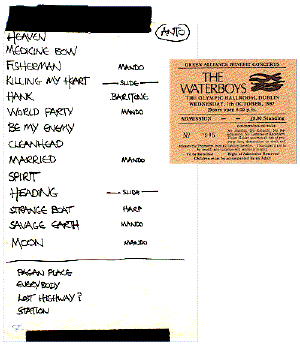 ANTO
HEAVEN
MEDICINE BOW
FISHERMAN MANDO
KILLING MY HEART — SLIDE —
HANK BARITONE
WORLD PARTY MANDO
BE MY ENEMY
CLEANHEAD
MARRIED MANDO
SPIRIT
HEADING — SLIDE —
STRANGE BOAT HARP
SAVAGE EARTH MANDO
MOON MANDO
PAGAN PLACE
EVERYBODY
LOST HIGHWAY?
STATION
GREEN ALLIANCE BENEFIT CONCERTS
THE
WATERBOYS
THE OLYMPIC BALLROOM, DUBLIN
WEDNESDAY, 7th OCTOBER, 1987
Doors open 8.00 p.m.
ADMISSION — — Standing
Nº